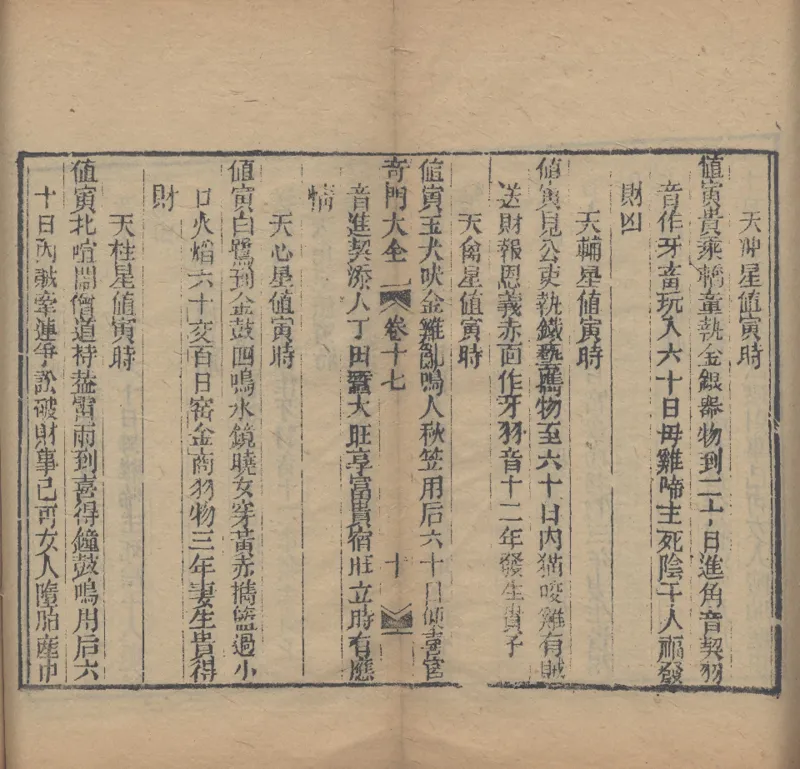 天冲星值寅時
值寅貴乘轎童執金銀器物到二十日進角音契羽
音作牙畜玩入六十日毋雞啼主死陰千人禍發
財凶
天輔星值寅時
值寅見公吏執鐵藝鷹物至六十日內猫咬雞有賊
送財報恩義赤面作牙羽音十二年發生貴子
天禽星值寅時
值寅玉犬吠金雞亂鳴人秋笠用后六十日傾臺官
奇門大全 卷十七 十
音進契添人丁田蠶大旺享富貴宿旺立時有應
情
天心星值寅時
值寅白鷺到金鼓四鳴水鏡曉女穿黃赤擕籃過小
口火熖六十亥百日窖金商羽物三年妻生貴得
財
天柱星值寅時
值寅北喧閙僧道持葢雷雨到喜得鐘鼓鳴用后六
十日內詼牽連爭訟破財事已可女人墮胎產巾